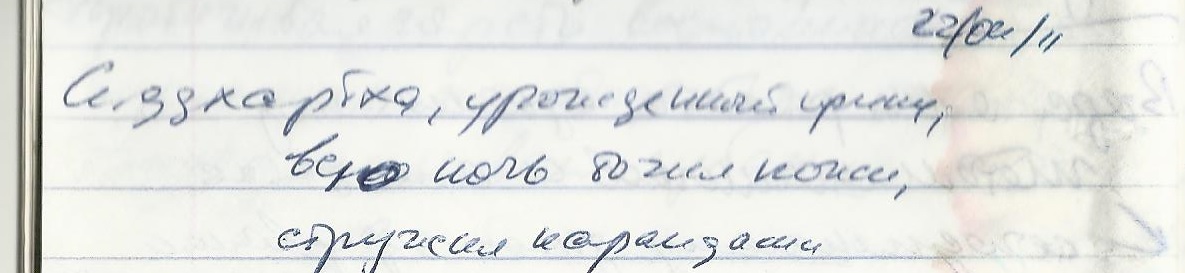 22/04/11
Сиддхартха, урожденный принц,
всю ночь точил ножи,
стружил карандаши